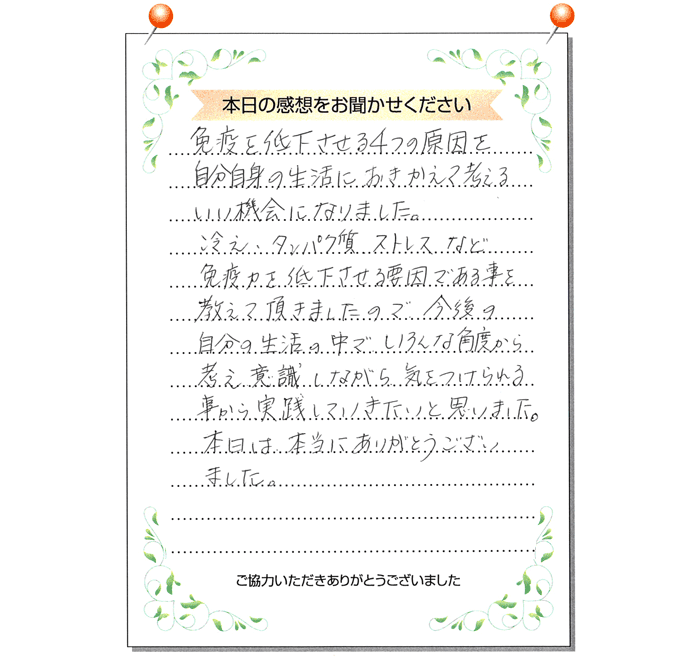 本日の感想をお聞かせください
免疫を低下させる4つの原因を
自分自身の生活におきかえて考える
いい機会になりました。
冷え、タンパク質 ストレス など
免疫力を低下させる要因である事を
教えて頂きましたので 今後の
自分の生活の中で、いろんな角度から
考え 意識しながら 気をつけられる
事から 実践していきたいと思いました。
本日は 本当にありがとうござい
ました。
ご協力いただきありがとうございました